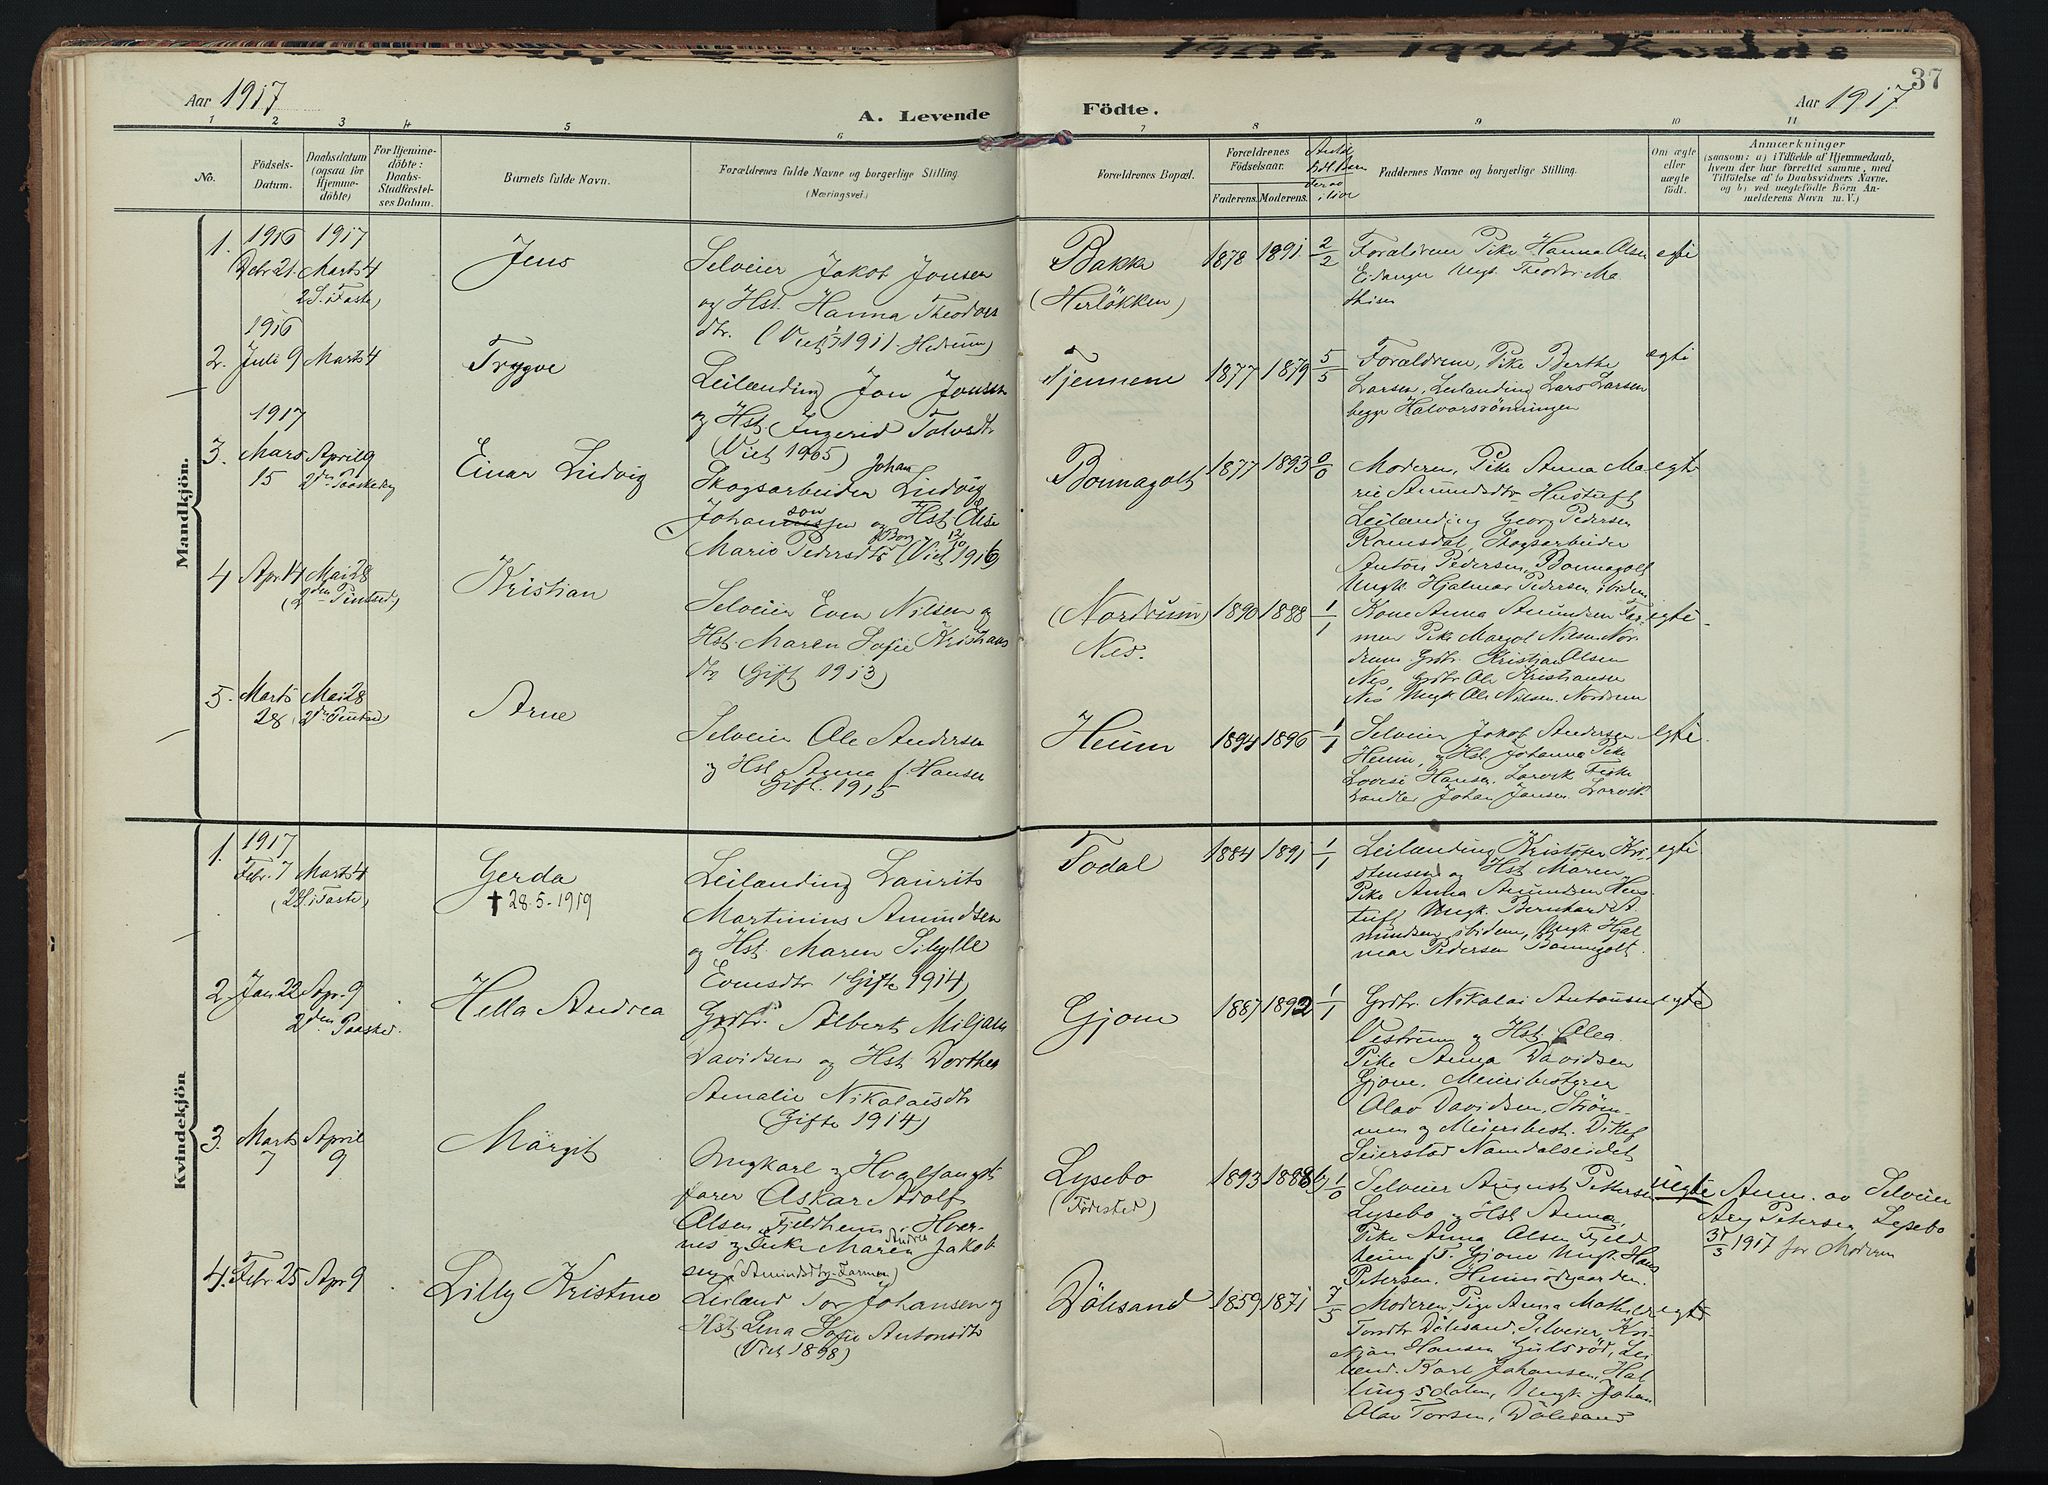 1906 1924 Kvelde
37
Aar 1917
A. Levende
Födte.
Aar 1917
1 2 3 4 5 6 7 8 9 10 11
No.
Födsels-
Datum.
Daabsdatum
(ogsaa for
Hjemme-
döbte)
For Hjemme-
döbte:
Daabs-
Stadfæstel-
ses Datum.
Barnets fulde Navn.
Forældrenes fulde Navne og borgerlige Stilling
(Næringsvei.)
Forældrenes Bopæl.
Forældrenes
Födselsaar.
Faderens.
Moderens.
Faddernes Navne og borgerlige Stilling.
Om ægte
eller
uægte
födt.
Anmærkninger
(saasom: a) i Tilfælde af Hjemmedaab,
hvem der har forrettet samme, med
Tilföielse af to Daabsvidners Navne.
og b) ved uegtefödte Börn An-
melderens Navn m. V.)
Mandkjön.
1.
1916 1917
Debr 21 Marts 4
2 S. i Faste)
Jens
Selveier Jakob Jonsen
og Hst. Hanna Theodors
dtr. (Viet 1911 Hedrum)
Bakke
(Herløkken)
1878 1891 2/2
Forældrene Pike Hanna Olsen
Eidanger Ungk. Theodor Ma
thisen
egte
1916
2. Juli 9 Marts 4
Trygve
Leilænding Jon Jonsen
og Hst. Ingerid Tolvsdtr
(Viet 1905)
Tjennene
1877 1879 5/5
Forældrene, Pike Berthe
Larsen, Leilænding Lars Larsen
begge Halvorsrönningen
egte
1917
3. Mars April 9
15 2den Paaskedag
Einar Ludvig
Johan
Skogsarbeider Ludvig
Johannssen og Hst. Else
son
Marie Pedersdtr (Viet 12/10 1916)
Bonnagolt
1877 1893 0/0
Moderen, Pike Anna Ma
rie Amundsdtr Hustuft
Leilænding Georg Pedersen
Ramsdal, Skogsarbeider
Anton Pedersen, Bonnagolt
Ungk. Hjalmar Pedersen ibidem
egte
4 Apr 14 Mai 28
(2den Pintsed)
Kristian
Selveier Even Nilsen og
Hst. Maren Sofie Kristians
dtr (Gift 1913)
(Nordrum)
Nes.
1890 1888 1/1
Kone Anna Amundsen Far
men Pike Margot Nilsen Nor
drum Grdbr. Kristian Olsen
Nes, Grdbr Ole Kristiansen
Nes Ungk Ole Nilsen. Nordrum
egte
5. Marts Mai 28
28 2den Pintsed
Arne
Selveier Ole Andersen
og Hst. Anna f. Hansen
Gift. 1915
Heum
1894 1896 1/1
Selveier Jakob Andersen
Heum, og Hst. Johanna Pike
Lovise Hansen Larvik Fiske
handler Johan Jansen. Larvik
egte.
Kvindekjön
1. 1917
Febr. 7 Marts 4
(2 S. i Faste)
Gerda
✝ 28.5-1919
Leilænding Laurits
Martinius Amundsen
og Hst. Maren Sibylle
Evensdtr (Gifte 1914)
Todal
1884 1891 1/1
Leilænding Kristofer Kri
stensen og Hst Maren
Pike Anna Amundsen Hus
tuft Ungk. Bernhard A
mundsen ibidem, Ungk. Hjal
mar Pedersen Bonnegolt.
egte
2. Jan 22 Apr. 9
2den Paasked.
Hella Andrea
Grdbr. Albert Miljam
Davidsen og Hst Dorthea
Amalie Nikolaisdtr
(Gifte 1914)
Gjone
1887 1892 1/1
Grdbr. Nikolai Antonsen
Vestrum og Hst. Olea
Pike Anna Davidsen
Gjone, Meieribestyrer
Olav Davidsen, Ström-
men og Meieribest. Ditlef
Seierstad Namdalseidet
egte
3. Marts April
7 9
Margit
Ungkarl og Hvalfangst
farer Oskar Adolf
Olsen Fjeldheim i Hvar-
nes og Pike Maren Andrea Jakob
sen (Amundsdbg. Farmen)
Lysebo
(Födested)
1893 1886 1/0
Selveier August Pettersen
Lysebo og Hst Anna,
Pike Anna Olsen Fjeld
heim f. Gjone Ungk. Hans
Petersen. Heimödgaarden.
uegte
Anm. av Selveier
Aug Petersen Lysebo
31/3 1917 for Moderen
4. Febr 25 Apr 9
Lilly Kristine
Leilænd Tor Johansen og
Hst. Lena Sofie Antonsdtr
(Viet 1898)
Dölesand
1859 1871 7/5
Moderen, Pige Anna Mathilde
Torsdtr Dölesand. Selveier Kri-
stjan Hansen Gulsröd, Lei
lænd. Karl Johansen, Hal
lingsdalen, Ungk. Johan
Olav Torsen, Dölesand
egte